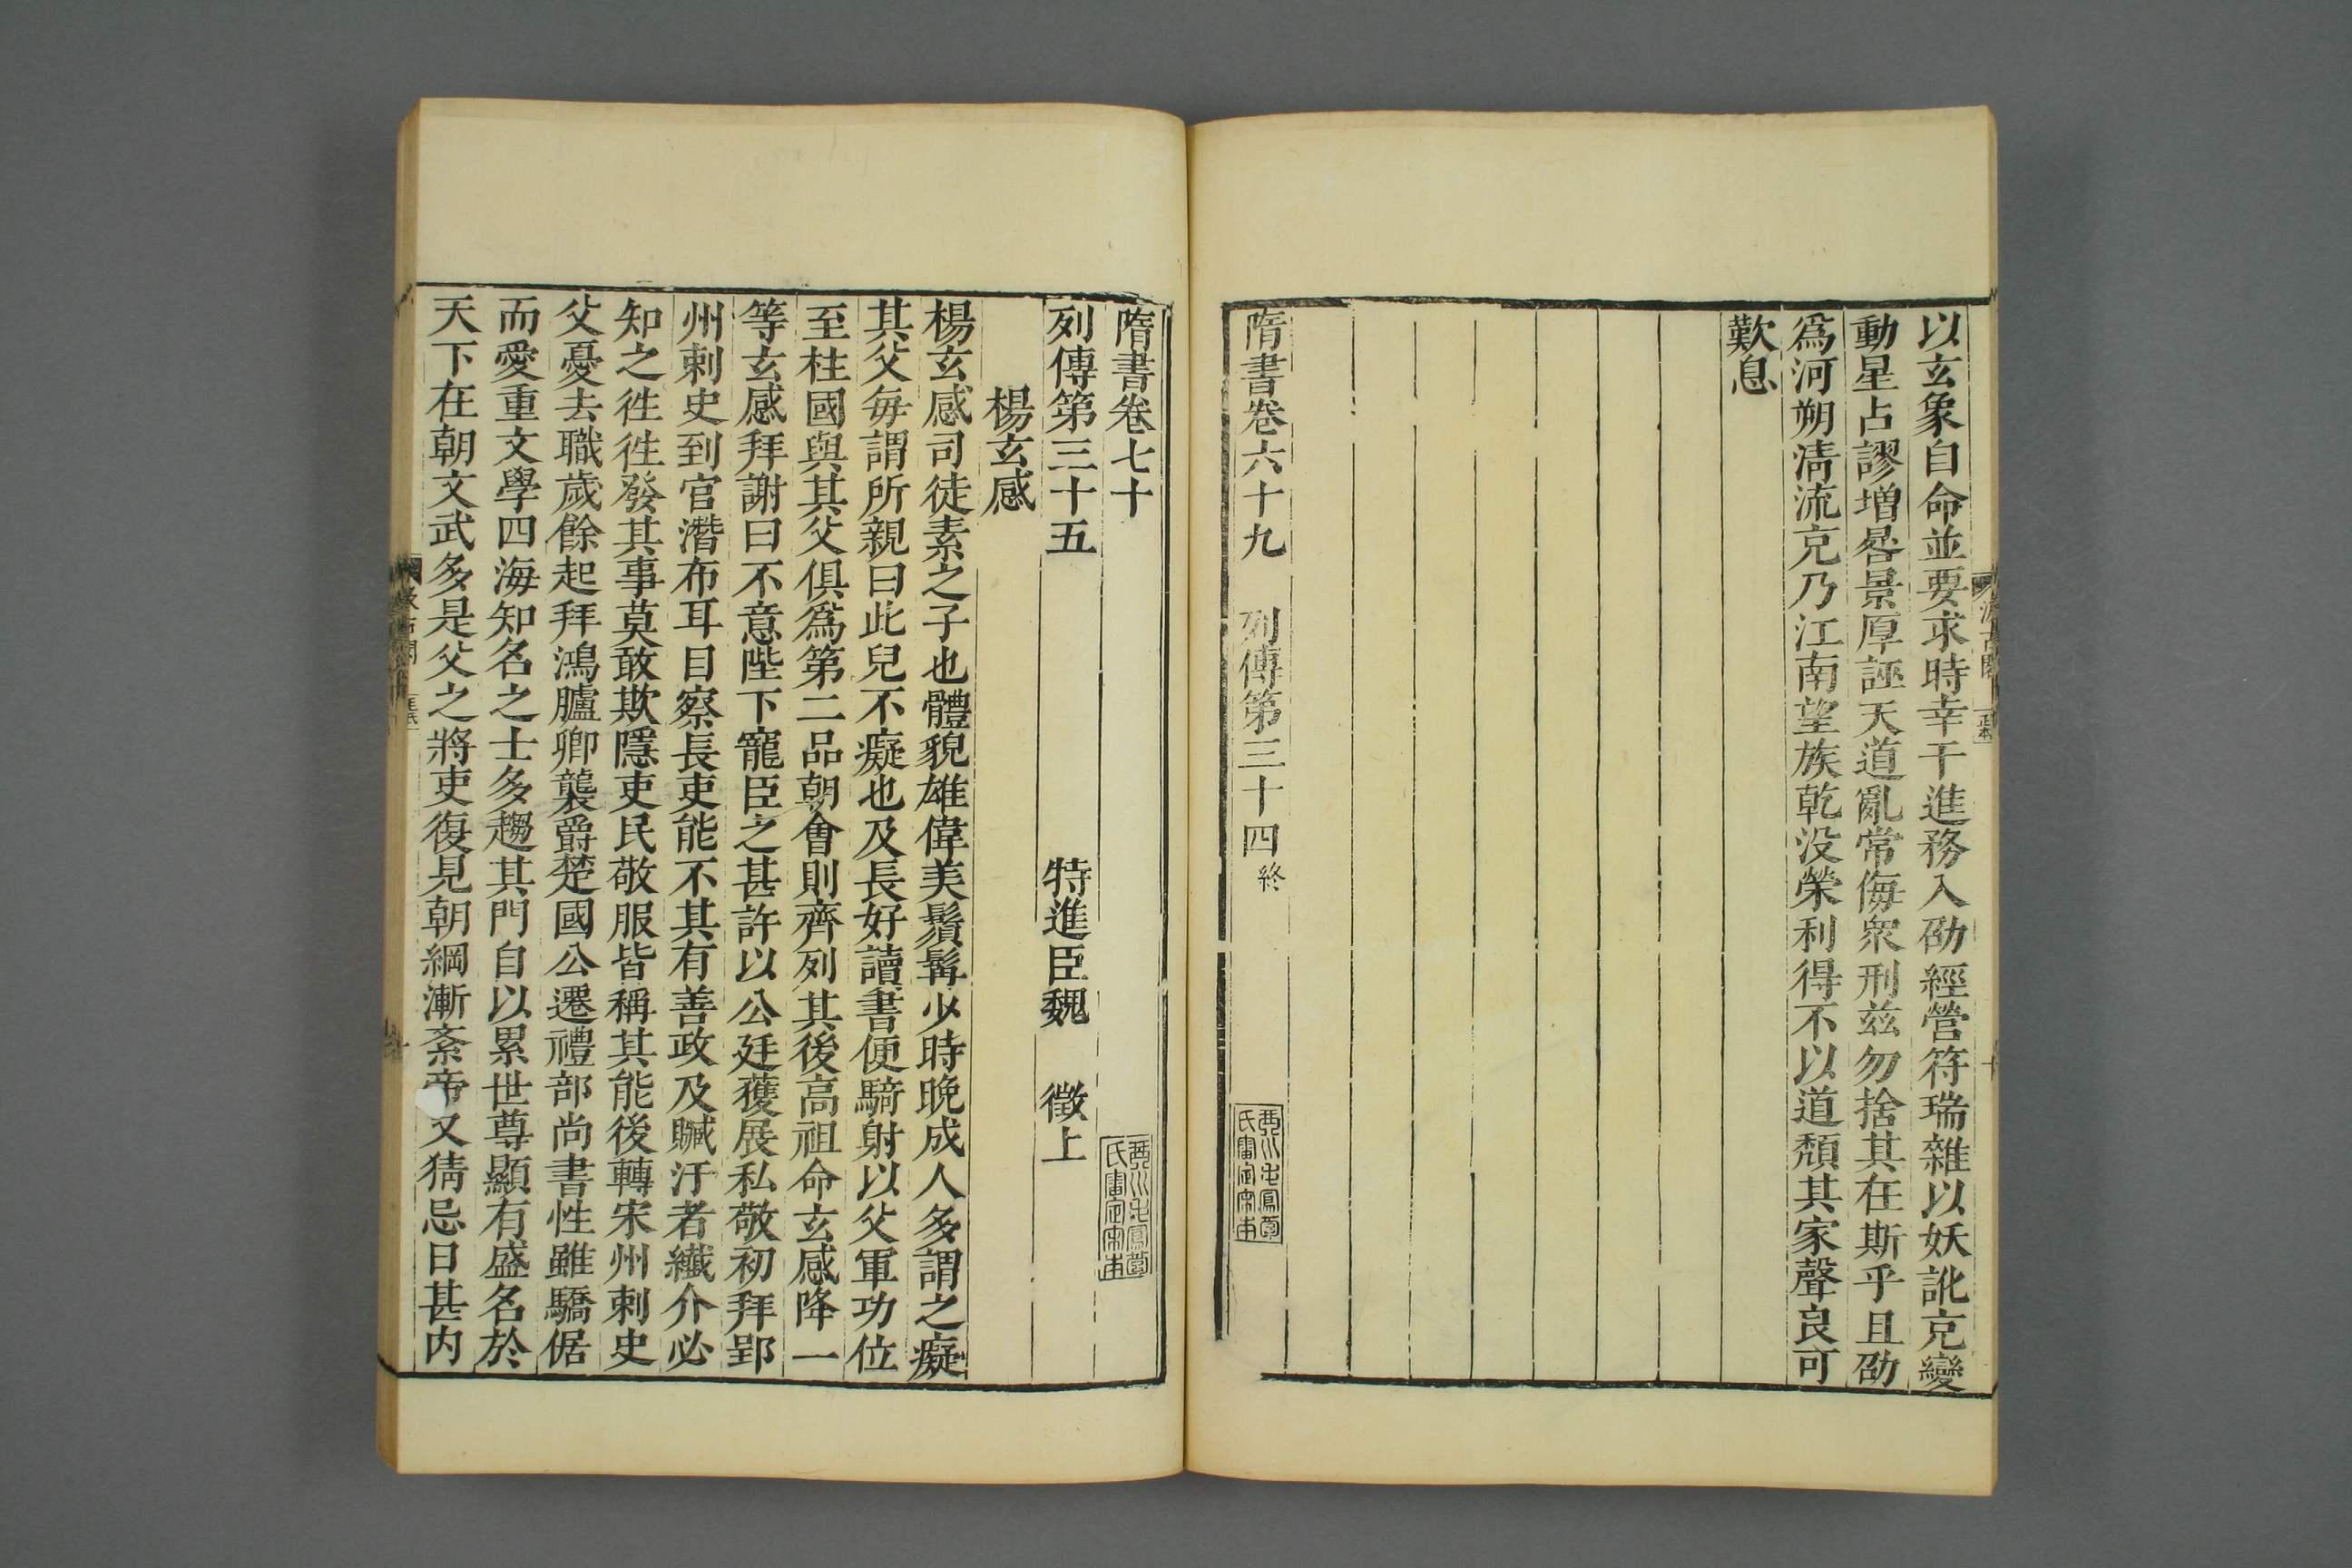 以玄象自命並要求時幸干進務入劭經營符瑞雜以妖訛克變
動星占謬增晷景厚誣天道亂常侮衆刑兹勿捨其在斯乎且劭
爲河朔清流克乃江南望族乾没榮利得不以道頹其家聲良可
歎息
隋書卷六十九 列傳第三十四終
隋書卷七十
列傳第三十五 特進臣魏 徵上
楊玄感
楊玄感司徒素之子也體貌雄偉美鬚髯少時晚成人多謂之癡
其父每謂所親曰此兒不癡也及長好讀書便騎射以父軍功位
至柱國與其父俱爲第二品朝會則齊列其後高祖命玄感降一
等玄感拜謝曰不意陛下寵臣之甚許以公廷獲展私敬初拜郢
州刺史到官潛布耳目察長吏能不其有善政及贓汙者纎介必
知之徃徃發其事莫敢欺隱吏民敬服皆稱其能後轉宋州刺史
父憂去職歲餘起拜鴻臚卿襲爵楚國公遷禮部尚書性雖驕倨
而愛重文學四海知名之士多趨其門自以累世尊顯有盛名於
天下在朝文武多是父之將吏復見朝綱漸紊帝又猜忌日甚内